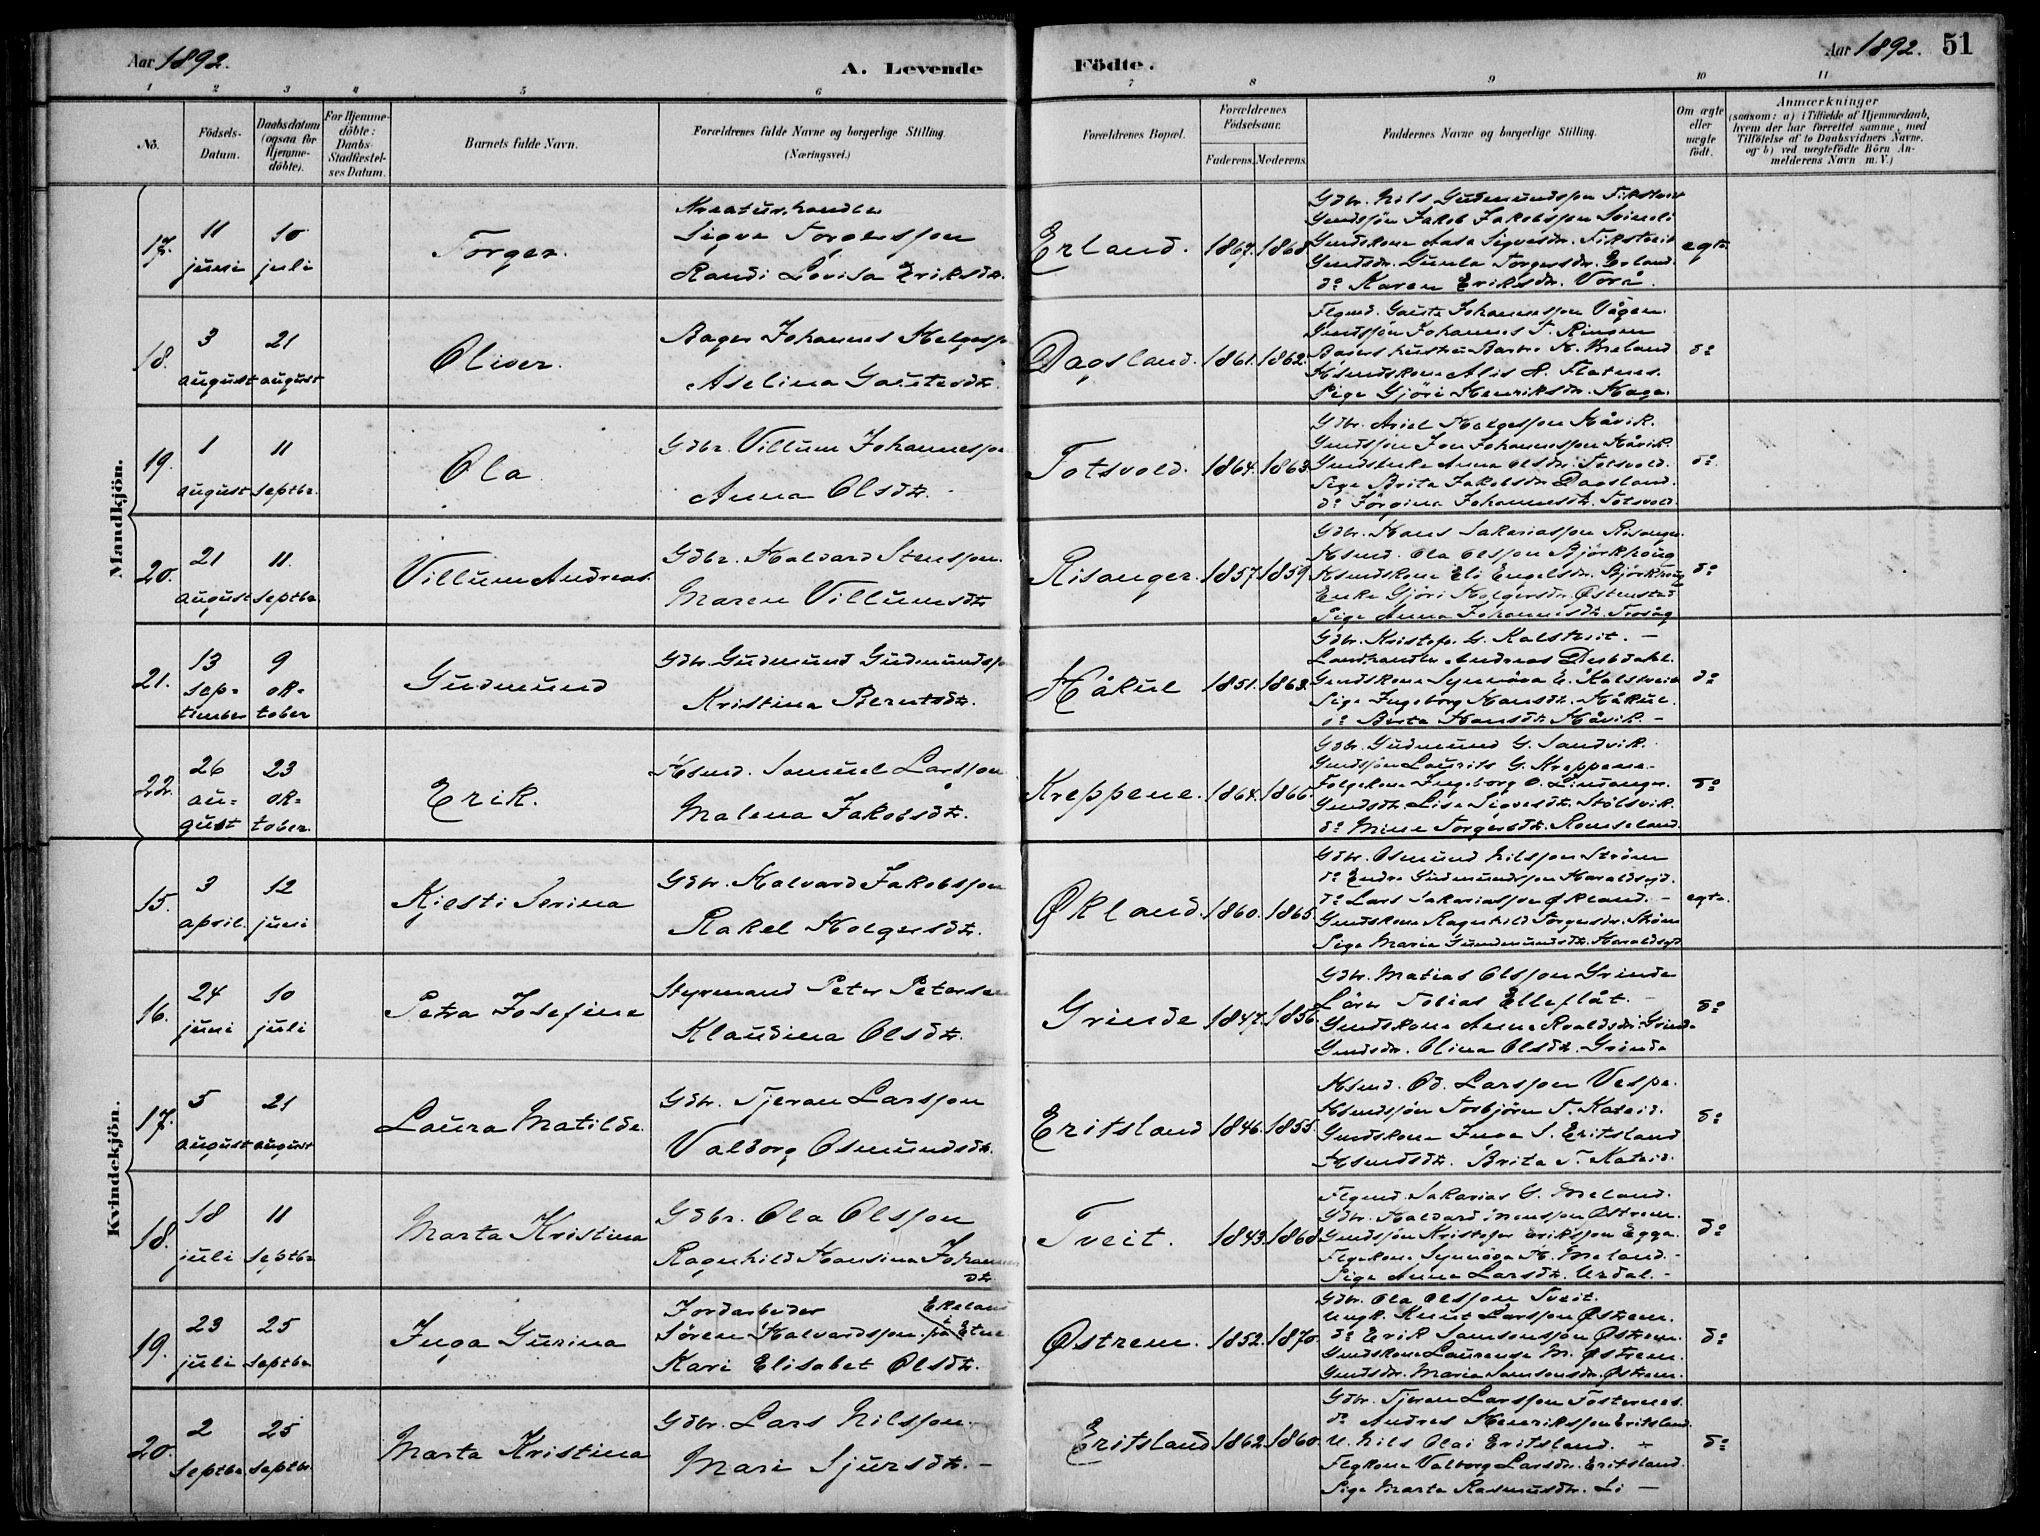 Aar 1892.
A. Levende
Födte.
Aar 1892. 51
1 2 3 4 5 6 7 8 9 10 11
No.
Födsels-Datum.
Daabsdatum (ogsaa for Hjemme-döbte).
For Hjemme-döbte: Daabs-Stadfæstel-ses Datum.
Barnets fulde Navn.
Forældrenes fulde Navne og borgerlige Stilling. (Næringsvei.)
Forældrenes Bopæl.
Forældrenes Födselsaar.
Faderens. Moderens.
Faddernes Navne og borgerlige Stilling.
Om ægte eller uægte födt.
Anmærkninger
(saasom: a) i Tilfælde af Hjemmedaab, hvem der har forrettet samme, med Tilföielse af to Daabsvidners Navne. og b) ved uægtefödte Börn An-melderens Navn m. V.)
Mandkjön.
17. 11 juni 10 juli
Torger.
Kreaturhandler
Sigve Torgersson
Randi Lovisa Eriksdtr.
Erland. 1867. 1868
Gbr. Nils Gudmundsson Fikstveit
Gmdsjøn Jakob Jakobsson
Gmdskone Aasa Sigvesdtr. Fikstveit
Gmdsdr. Gunla Torgersdr. Erland
do Karen Eriksdr. Vorå.
egte
18. 3 august 21 august
Oliver.
Bager Johannes Helgesso
Aselina Gautesdtr.
Dagsland. 1861. 1862.
Flgmd. Gaute Johannessøn Vågen.
Gmdsjøn Johannes T. Ringen
Bagers hustru Barbr. H. Meland
Hsmdskone Alis H. Flatnes.
Pige Gjöri Henriksdr. Haga.
do
19. 1 august 11 septbr.
Ola
Gdbr. Villum Johannesso
Anna Olsdtr.
Totsvold. 1864. 1863.
Gdbr. Helgesson Håvik.
Gmdssjøn Jon Johannesson Håvik.
Gmdsenke Anna Olsdtr. Totsvold.
Pige Brita Jakobsdr. Dagsland.
do Jörgina Johannesdtr. Totsvold.
do
20. 21 august 11. septbr.
Villum Andreas.
Gdbr. Halvard Stensson.
Maren Villumsdtr.
Risanger. 1857. 1859
Gdbr. Hans Sakariasson Risanger.
Hsmd. Ola Olsson Bjørkhoug
Hsmdskone Eli Engelsdr. Bjørkhoug
Enke Gjøri Holgersdr. Østenstad
Pige Anna Johannesdtr.
do
21. 13 sep-tember 9 ok-tober
Gudmund
Gdbr. Gudmund Gudmundsso
Kristina Berntsdtr.
Håkul 1851. 1863.
Gdbr. Kristofer G. Kalstveit. -
Landhandler Andreas Djupdahl.
Gmdskone Synnöva E. Kalstveit
Pige Ingeborg Hansdtr. Håkul.
do Berta Hansdtr. Håvik. -
do
22. 26 au-gust 23 ok-tober.
Erik.
Hsmd. Samuel Larsson
Malena Jakobsdtr.
Kreppene. 1864. 1866.
Gdbr. Gudmund G. Sandvik.
Gmdssjøn Laurits G. Kreppene.
Folgekone Ingeborg O.
Gmdsdtr. Lisa Sigvesdtr. Stölsvik.
do Mina Torgersdtr. Romseland
do
Kvindekjön.
15. 3 april. 12 juni
Kjesti Serina
Gdbr. Halvard Jakobsson
Rakel Holgersdtr.
Økland. 1860. 1865.
Gdbr. Osmund Nilsson Ström
do Endre Gudmundsson Haraldseid.
do Lars Sakariasson Økland. -
Gmdskone Ragnhild Torgersdr. Ström
Pige Maria Gudmundsdtr. Haraldseid
egte.
16. 24 juni 10 juli
Petra Josefine
Styrmand Peter Petersen
Klaudina Olsdtr.
Grinde 1847. 1856.
Gdbr. Matias Olsson Grinde
Lærer Tobias Elleflåt. -
Gmdskone Anna Roaldsdr. Grinde
Gmdsdr. Olina Olsdtr. Grinde
do
17. 5 august 21 august
Laura Matilde
Gdbr. Tjeran Larsson
Valborg Osmundsdtr.
Eritsland 1846. 1855.
Hsmd. Od. Larsson Vespe.
Hsmdssjøn Torbjørn T. Kateid.
Gmdskone Inga S. Eritsland
Hsmdsdtr. Brita T. Kateid.
do
18. 18 juli 11 septbr
Marta Kristina
Gdbr. Ola Olsson
Ragnhild Hansina Johannes
dtr.
Tveit. 1843. 1868
Flgmd. Sakarias G. Meland.
Gdbr. Halvard Monsson Østrem.
Gmdssjøn Kristofer Eriksson Egge.
Flgekone Synnöva H. Meland. -
Pige Anna Larsdtr. Urdal. -
do
19. 23 juli 25 septbr
Inga Gurina
Jordarbeider Ekeland
Søren Halvardsson. på Etne
Kari Elisabet Olsdtr.
Østrem. 1852. 1870.
Gdbr. Ola Olsson Tveit.
Ungk. Knut Larsson Østrem.
do Erik Samsonsson Østrem.
Gmdskone Laurense M. Østrem.
Gmdsdr. Maria Samsonsdr. Østrem.
do
20. 2 septbr 25 septbr.
Marta Kristina
Gdbr. Lars Nilsson.
Mari Sjursdtr. -
Eritsland 1862. 1860.
Gdbr. Tjeran Larsson Fosternes
do Andres Henriksson Eritsland.
U. Nils Olai Eritsland. -
Flgkone Valborg Larsdr. Eritsland.
Pige Marta Rasmusdtr. Li -
do